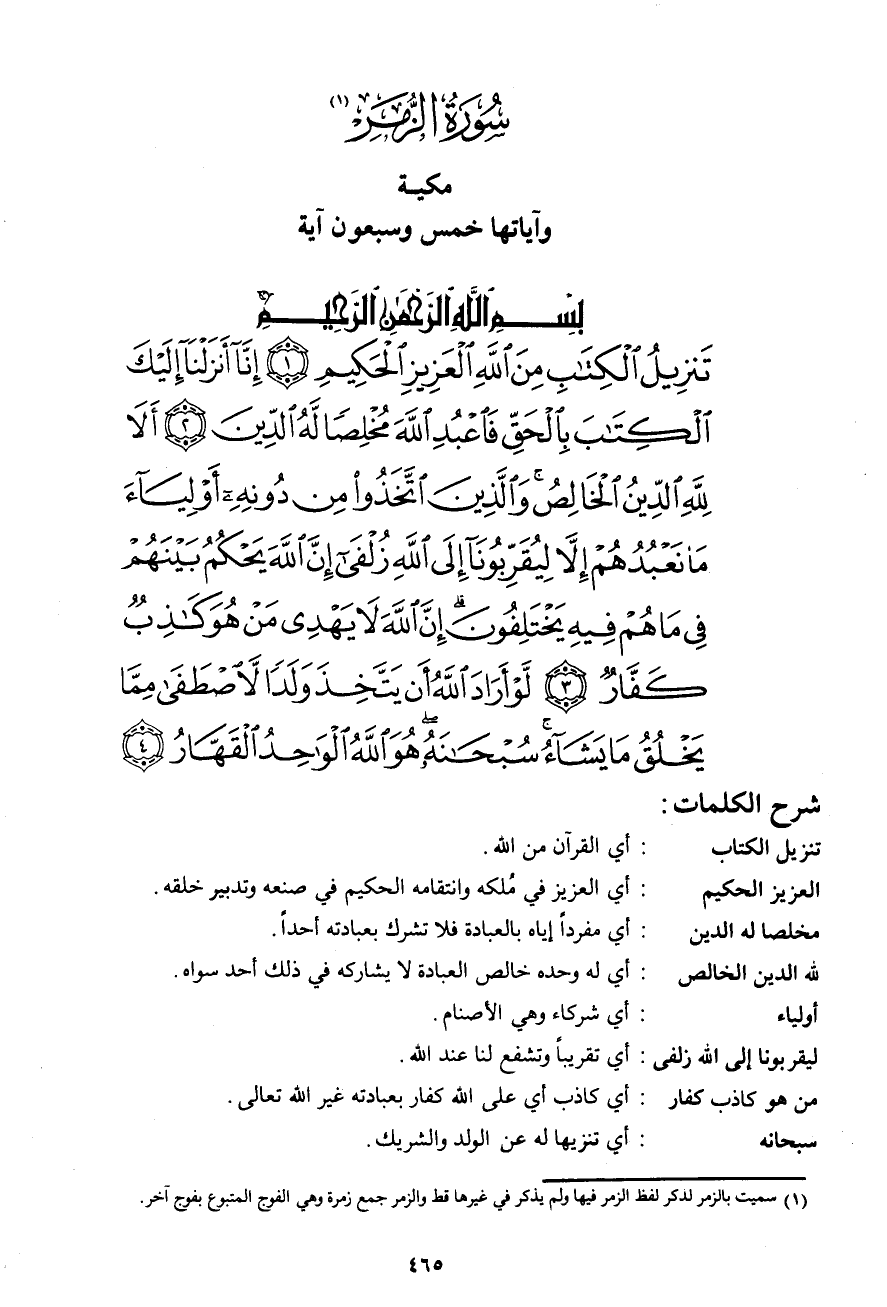 سُورَةُ الزُّمَرِ (١)
مكيـة
وآياتها خمس وسبعون آية
بِسْمِ ٱللَّهِ ٱلرَّحْمَٰنِ ٱلرَّحِيمِ
تَنزِيلُ ٱلْكِتَٰبِ مِنَ ٱللَّهِ ٱلْعَزِيزِ ٱلْحَكِيمِ ﴿١﴾ إِنَّآ أَنزَلْنَآ إِلَيْكَ
ٱلْكِتَٰبَ بِٱلْحَقِّ فَٱعْبُدِ ٱللَّهَ مُخْلِصًا لَّهُ ٱلدِّينَ ﴿٢﴾ أَلَا
لِلَّهِ ٱلدِّينُ ٱلْخَالِصُ ۚ وَٱلَّذِينَ ٱتَّخَذُوا۟ مِن دُونِهِۦٓ أَوْلِيَآءَ
مَا نَعْبُدُهُمْ إِلَّا لِيُقَرِّبُونَآ إِلَى ٱللَّهِ زُلْفَىٰٓ إِنَّ ٱللَّهَ يَحْكُمُ بَيْنَهُمْ
فِى مَا هُمْ فِيهِ يَخْتَلِفُونَ ۗ إِنَّ ٱللَّهَ لَا يَهْدِى مَنْ هُوَ كَٰذِبٌ
كَفَّارٌ ﴿٣﴾ لَّوْ أَرَادَ ٱللَّهُ أَن يَتَّخِذَ وَلَدًا لَّٱصْطَفَىٰ مِمَّا
يَخْلُقُ مَا يَشَآءُ ۚ سُبْحَٰنَهُۥ ۖ هُوَ ٱللَّهُ ٱلْوَٰحِدُ ٱلْقَهَّارُ ﴿٤﴾
شرح الكلمات :
تنزيل الكتاب : أي القرآن من الله .
العزيز الحكيم : أي العزيز في مُلكه وانتقامه الحكيم في صنعه وتدبير خلقه .
مخلصا له الدين : أي مفرداً إياه بالعبادة فلا تشرك بعبادته أحداً .
لله الدين الخالص : أي له وحده خالص العبادة لا يشاركه في ذلك أحد سواه .
أولياء : أي شركاء وهي الأصنام .
ليقربونا إلى الله زلفى : أي تقريباً وتشفع لنا عند الله .
من هو كاذب كفار : أي كاذب أي على الله كفار بعبادته غير الله تعالى .
سبحانه : أي تنزيها له عن الولد والشريك .
(١) سميت بالزمر لذكر لفظ الزمر فيها ولم يذكر في غيرها قط والزمر جمع زمرة وهي الفوج المتبوع بفوج آخر .
٤٦٥